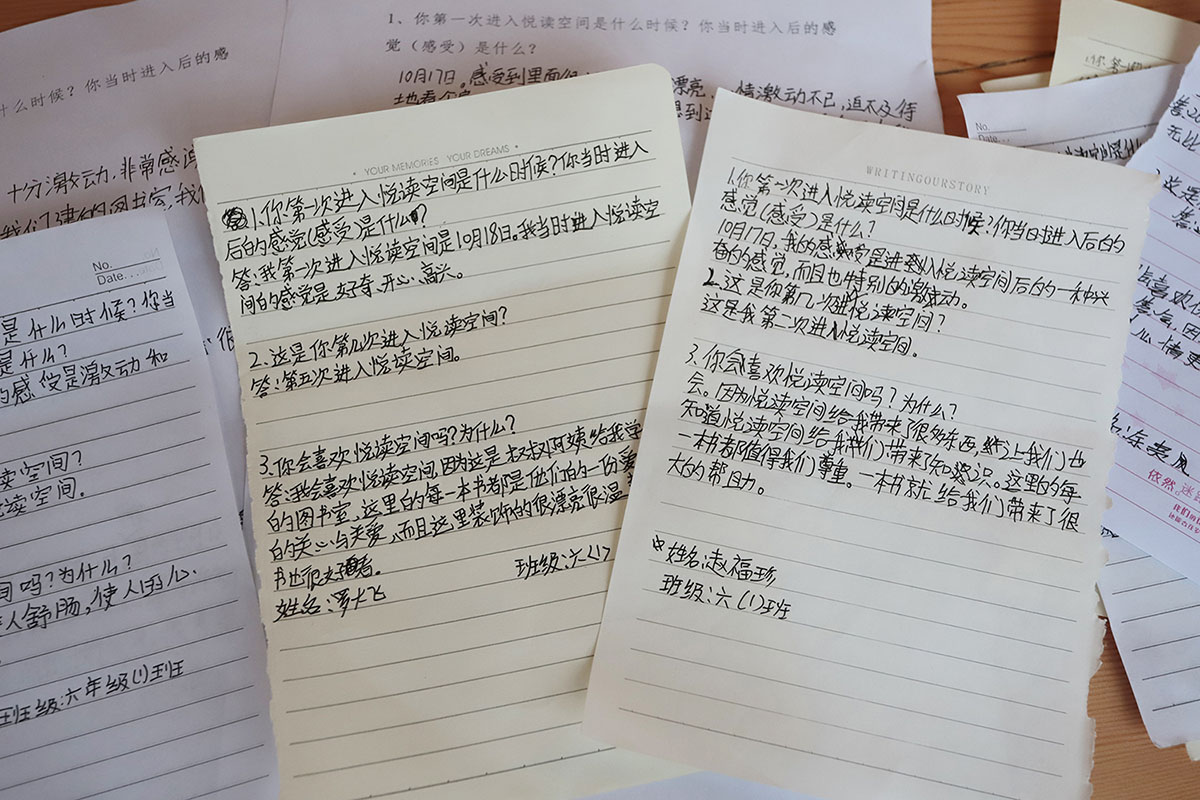 1、你第一次进入悦读空间是什么时候？你当时进入后的感
觉（感受）是什么？
10月17日。感受到里面很
漂亮
情激动不已，迫不及待
什么时候？你当时进入后的感
十分激动，非常感谢
No.
Date...
是什么时候？你当
是什么？
的感受是激动和
读空间？
读空间。
间吗？为什么？
人舒肠，使人的心.
班级：六年级(1)班
• YOUR MEMORIES YOUR DREAMS •
1.你第一次进入悦读空间是什么时候？你当时进入
后的感觉(感受)是什么？
答：我第一次进入悦读空间是10月18日。我当时进入悦读空
间的感觉是好奇、开心、高兴。
2.这是你第几次进入悦读空间？
答：第五次进入悦读空间。
3.你会喜欢悦读空间吗？为什么？
答：我会喜欢悦读空间，因为这是叔叔阿姨给我学
的图书室，这里的每一本书都是他们的一份爱
的关心与关爱，而且这里装饰的很漂亮很温
书也很好看。
班级：六(1)
姓名：罗大飞
WRITINGOURSTORY
1.你第一次进入悦读空间是什么时候？你当时进入后的
感觉(感受)是什么？
10月17，我的感受是进入悦读空间后的一种兴
奋的感觉，而且也特别的激动。
2.这是你第几次进悦读空间？
这是我第二次进入悦读空间。
3.你会喜欢悦读空间吗？为什么？
会。因为悦读空间给我带来了很多东西，然让我们也
知道悦读空间给我们带来了知识。这里的每
一本书都值得我们尊重。一本书就给我们带来了很
大的帮助。
姓名：赵福珍
班级：六(1)班
No.
Date.
喜欢
依然。迷